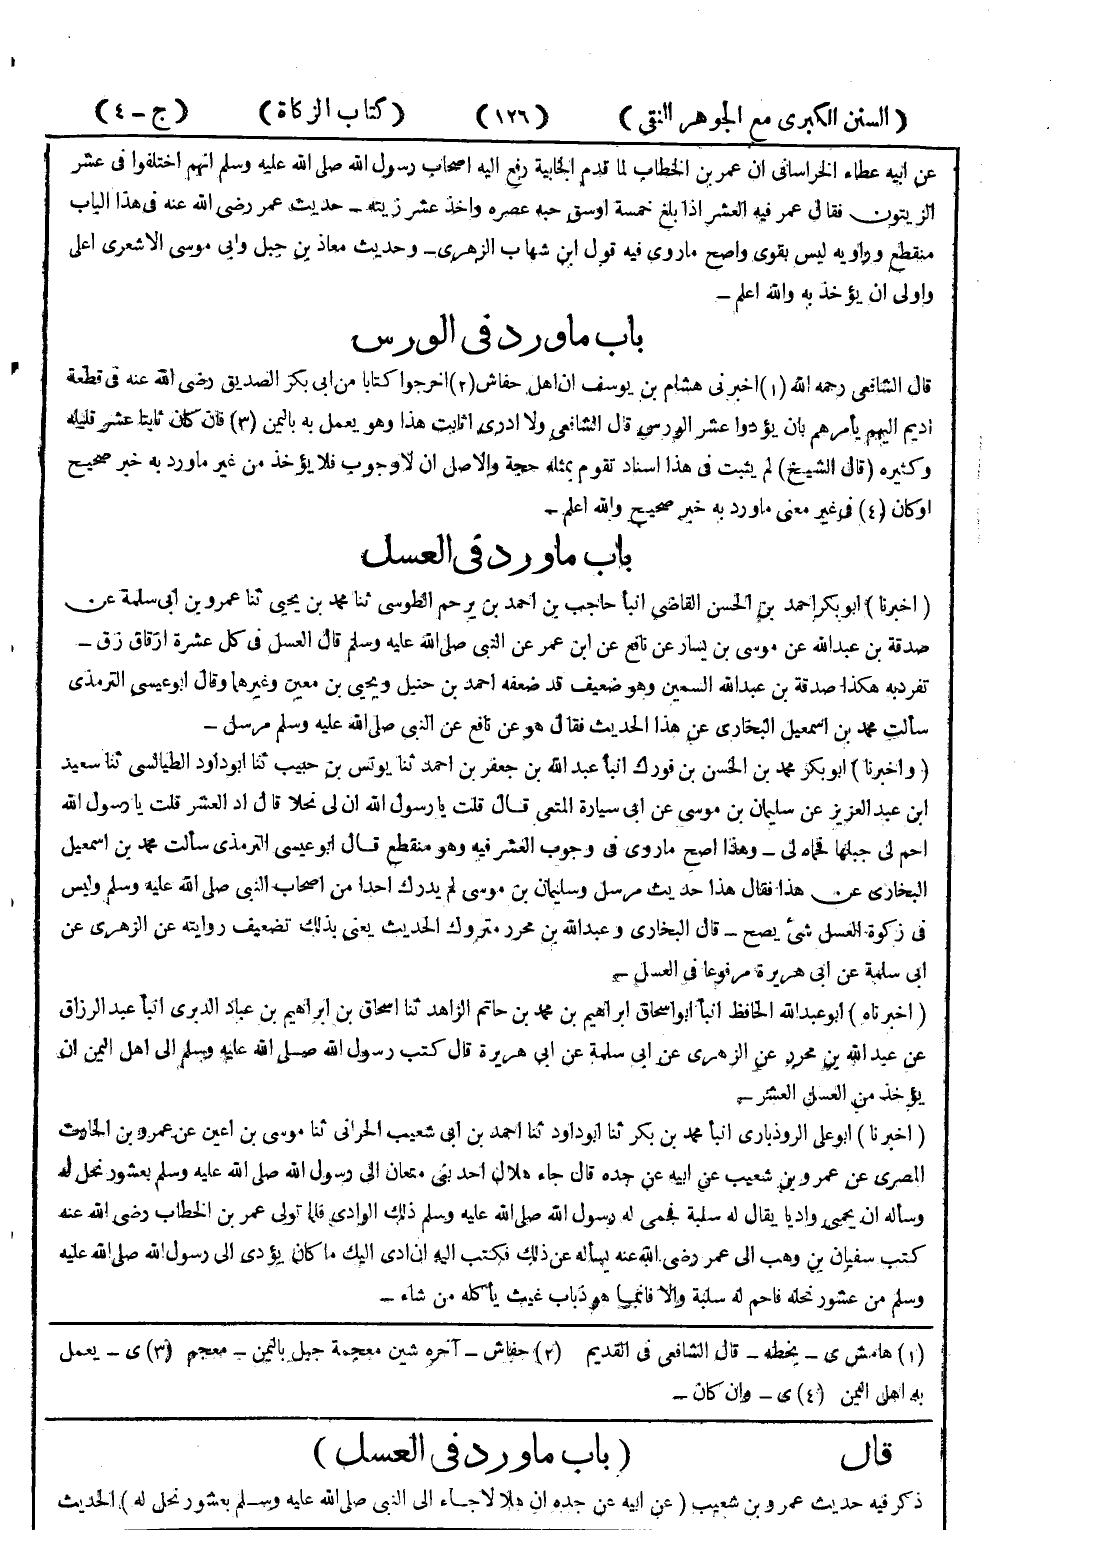 (السنن الكبرى مع الجوهر النقى) (١٢٦) (كتاب الزكاة) (ج - ٤)
عن ابيه عطاء الخراسانى ان عمر بن الخطاب لما قدم الجابية رفع اليه اصحاب رسول الله صلى الله عليه وسلم انهم اختلفوا فى عشر
الزيتون فقال عمر فيه العشر اذا بلغ خمسة اوسق حبه عصره واخذ عشر زيته - حديث عمر رضى الله عنه فى هذا الباب
منقطع وراويه ليس بقوى واصح ماروى فيه قول ابن شهاب الزهرى - وحديث معاذ بن جبل وابى موسى الاشعرى اعلى
واولى ان يؤخذ به والله اعلم -
باب ماورد فى الورس
قال الشافعى رحمه الله (١) اخبرنى هشام بن يوسف ان اهل حفاش (٢) اخرجوا كتابا من ابى بكر الصديق رضى الله عنه فى قطعة
اديم اليهم يأمرهم بان يؤدوا عشر الورس قال الشافعى ولا ادرى اثابت هذا وهو يعمل به باليمن (٣) فان كان ثابتا عشر قليله
وكثيره (قال الشيخ) لم يثبت فى هذا اسناد تقوم بمثله حجة والاصل ان لاوجوب فلا يؤخذ من غير ماورد به خبر صحيح
اوكان (٤) فى غير معنى ماورد به خبر صحيح والله اعلم -
باب ماورد فى العسل
(اخبرنا) ابوبكر احمد بن الحسن القاضي انبأ حاجب بن احمد بن يرحم الطوسى ثنا محمد بن يحيى ثنا عمرو بن ابى سلمة عن
صدقة بن عبدالله عن موسى بن يسار عن نافع عن ابن عمر عن النبى صلى الله عليه وسلم قال العسل فى كل عشرة ازقاق زق -
تفرد به هكذا صدقة بن عبدالله السمين وهو ضعيف قد ضعفه احمد بن حنبل ويحيى بن معين وغيرهما وقال ابوعيسى الترمذى
سألت محمد بن اسمعيل البخارى عن هذا الحديث فقال هو عن نافع عن النبى صلى الله عليه وسلم مرسل -
(واخبرنا) ابوبكر محمد بن الحسن بن فورك انبأ عبد الله بن جعفر بن احمد ثنا يونس بن حبيب ثنا ابوداود الطيالسى ثنا سعيد
ابن عبد العزيز عن سليمان بن موسى عن ابى سيارة المتعى قال قلت يا رسول الله ان لى نحلا قال اد العشر قلت يا رسول الله
احم لى جبلها فحماه لى - وهذا اصح ماروى فى وجوب العشر فيه وهو منقطع قال ابوعيسى الترمذى سألت محمد بن اسمعيل
البخارى عن هذا فقال هذا حديث مرسل وسليمان بن موسى لم يدرك احدا من اصحاب النبى صلى الله عليه وسلم وليس
فى زكوة العسل شئ يصح - قال البخارى وعبدالله بن محرر متروك الحديث يعنى بذلك تضعيف روايته عن الزهرى عن
ابى سلمة عن ابى هريرة مرفوعا فى العسل -
(اخبرناه) ابوعبدالله الحافظ انبأ ابواسحاق ابراهيم بن محمد بن حاتم الزاهد ثنا اسحاق بن ابراهيم بن عباد الدبرى انبأ عبد الرزاق
عن عبد الله بن محرر عن الزهرى عن ابى سلمة عن ابى هريرة قال كتب رسول الله صلى الله عليه وسلم الى اهل اليمن ان
يؤخذ من العسل العشر -
(اخبرنا) ابوعلى الروذبارى انبأ محمد بن بكر ثنا ابوداود ثنا احمد بن ابى شعيب الحرانى ثنا موسى بن اعين عن عمرو بن الحارث
المصرى عن عمرو بن شعيب عن ابيه عن جده قال جاء هلال احد بنى متعان الى رسول الله صلى الله عليه وسلم بعشور نحل له
وسأله ان يحمى واديا يقال له سلبة فحمى له رسول الله صلى الله عليه وسلم ذلك الوادى فلما تولى عمر بن الخطاب رضى الله عنه
كتب سفيان بن وهب الى عمر رضى الله عنه يسأله عن ذلك فكتب اليه ان ادى اليك ما كان يؤدى الى رسول الله صلى الله عليه
وسلم من عشور نحله فاحم له سلبة والا فانما هو ذباب غيث يأكله من شاء -
(١) هامش ى - بخطه - قال الشافعى فى القديم (٢) حفاش - آخره شين معجمة جبل باليمن - معجم (٣) ى - يعمل
به اهل اليمن (٤) ى - وان كان -
قال (باب ماورد فى العسل)
ذكر فيه حديث عمرو بن شعيب (عن ابيه عن جده ان هلالا جاء الى النبى صلى الله عليه وسلم بعشور نحل له) الحديث